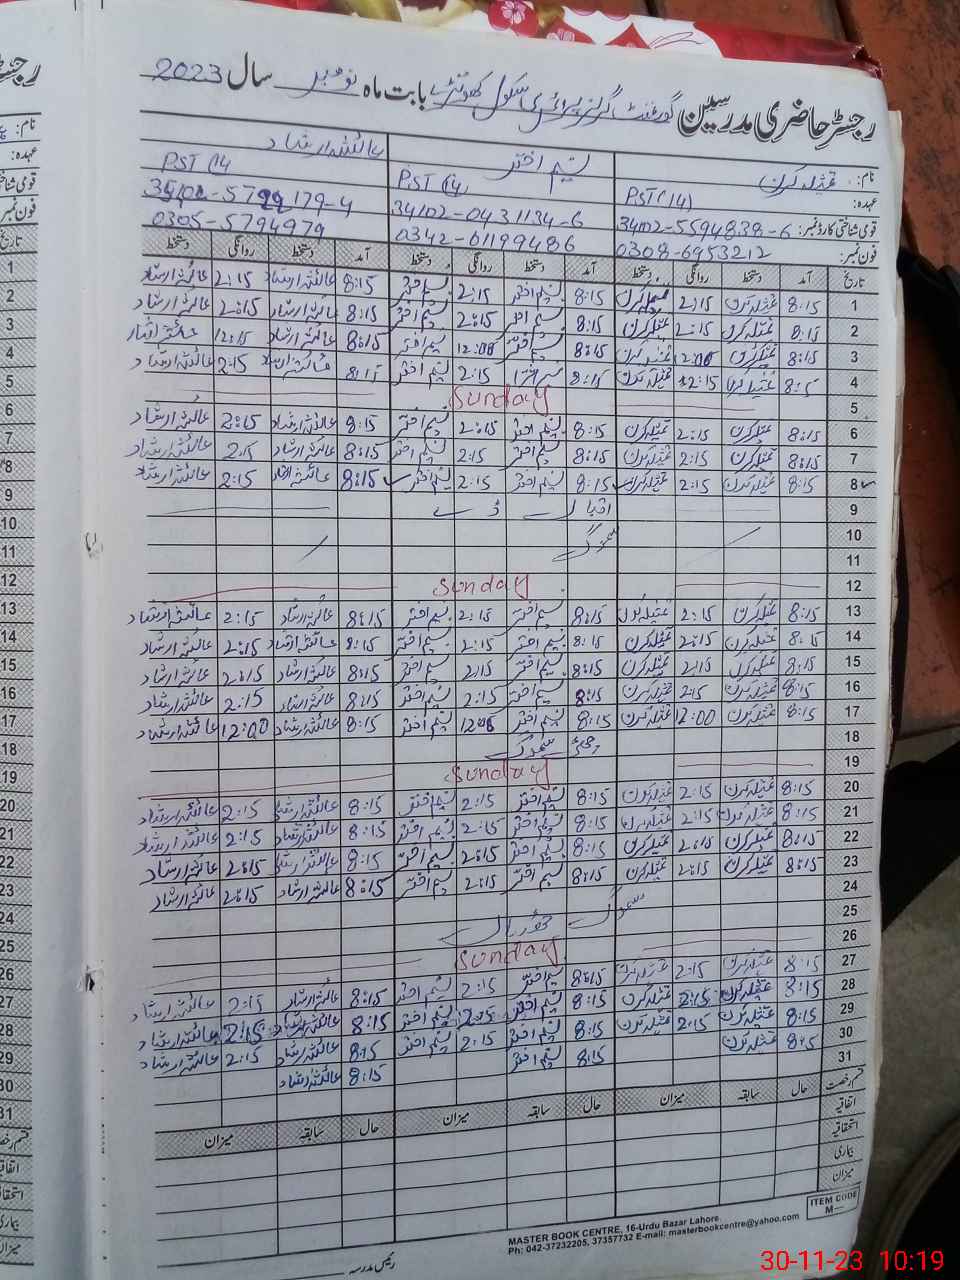 رجسٹر حاضری مدرسین گورنمنٹ گرلز پرائمری سکول بابت ماہ نومبر سال 2023
نام: عقیلہ کرن نسیم اختر عائشہ ارشاد
عہدہ: PST(14) PST(14) PST(14
قومی شناختی کارڈ نمبر: 34102-5594838-6 34102-0431134-6
فون نمبر: 0308-6953212 0342-6119948 6 0305-5794979
تاریخ آمد دستخط روانگی دستخط آمد دستخط روانگی دستخط آمد دستخط روانگی دستخط
1 8:15 عقیلہ کرن 2:15 8:15 نسیم اختر 2:15 نسیم اختر 8:15 عائشہ ارشاد 2:15 عائشہ ارشاد
2 8:15 عقیلہ کرن 2:15 عقیلہ کرن 8:15 نسیم اختر 2:15 نسیم اختر 8:15 عائشہ ارشاد 2:15 عائشہ ارشاد
3 8:15 عقیلہ کرن 12:00 عقیلہ کرن 8:15 نسیم اختر 12:00 نسیم اختر 8:15 عائشہ ارشاد 12:15 عائشہ ارشاد
4 8:15 عقیلہ کرن 12:15 عقیلہ کرن 8:15 نسیم اختر 2:15 نسیم اختر 8:15 عائشہ ارشاد 2:15 عائشہ ارشاد
5 Sunday
6 8:15 عقیلہ کرن 2:15 عقیلہ کرن 8:15 نسیم اختر 2:15 نسیم اختر 8:15 عائشہ ارشاد 2:15 عائشہ ارشاد
7 8:15 عقیلہ کرن 2:15 عقیلہ کرن 8:15 نسیم اختر 2:15 نسیم اختر 8:15 عائشہ ارشاد 2:15 عائشہ ارشاد
8 8:15 عقیلہ کرن 2:15 عقیلہ کرن 8:15 نسیم اختر 2:15 نسیم اختر 8:15 عائشہ ارشاد 2:15 عائشہ ارشاد
9 اقبال ڈے
10 سموگ
11
12 Sunday
13 8:15 عقیلہ کرن 2:15 عقیلہ کرن 8:15 نسیم اختر 2:15 نسیم اختر 8:15 عائشہ ارشاد 2:15 عائشہ ارشاد
14 8:15 عقیلہ کرن 2:15 عقیلہ کرن 8:15 نسیم اختر 2:15 نسیم اختر 8:15 عائشہ ارشاد 2:15 عائشہ ارشاد
15 8:15 عقیلہ کرن 2:15 عقیلہ کرن 8:15 نسیم اختر 2:15 نسیم اختر 8:15 عائشہ ارشاد 2:15 عائشہ ارشاد
16 8:15 عقیلہ کرن 2:15 عقیلہ کرن 8:15 نسیم اختر 2:15 نسیم اختر 8:15 عائشہ ارشاد 2:15 عائشہ ارشاد
17 8:15 عقیلہ کرن 12:00 عقیلہ کرن 8:15 نسیم اختر 12:00 نسیم اختر 8:15 عائشہ ارشاد 12:00 عائشہ ارشاد
18 سموگ
19 Sunday
20 8:15 عقیلہ کرن 2:15 عقیلہ کرن 8:15 نسیم اختر 2:15 نسیم اختر 8:15 عائشہ ارشاد 2:15 عائشہ ارشاد
21 8:15 عقیلہ کرن 2:15 عقیلہ کرن 8:15 نسیم اختر 2:15 نسیم اختر 8:15 عائشہ ارشاد 2:15 عائشہ ارشاد
22 8:15 عقیلہ کرن 2:15 عقیلہ کرن 8:15 نسیم اختر 2:15 نسیم اختر 8:15 عائشہ ارشاد 2:15 عائشہ ارشاد
23 8:15 عقیلہ کرن 2:15 عقیلہ کرن 8:15 نسیم اختر 2:15 نسیم اختر 8:15 عائشہ ارشاد 2:15 عائشہ ارشاد
24
25 سموگ
26 Sunday
27 8:15 عقیلہ کرن 2:15 عقیلہ کرن 8:15 نسیم اختر 2:15 نسیم اختر 8:15 عائشہ ارشاد 2:15 عائشہ ارشاد
28 8:15 عقیلہ کرن 2:15 عقیلہ کرن 8:15 نسیم اختر 2:15 نسیم اختر 8:15 عائشہ ارشاد 2:15 عائشہ ارشاد
29 8:15 عقیلہ کرن 2:15 عقیلہ کرن 8:15 نسیم اختر 2:15 نسیم اختر 8:15 عائشہ ارشاد 2:15 عائشہ ارشاد
30 8:15 عقیلہ کرن 8:15 نسیم اختر 8:15 عائشہ ارشاد
31
قسم رخصت حال سابقہ میزان حال سابقہ میزان حال سابقہ میزان
اتفاقیہ
استحقاقیہ
بیماری
میزان
ITEM CODE
M—
رئیس مدرسہ
MASTER BOOK CENTRE, 16-Urdu Bazar Lahore.
Ph: 042-37232205, 37357732 E-mail: masterbookcentre@yahoo.com
30-11-23 10:19